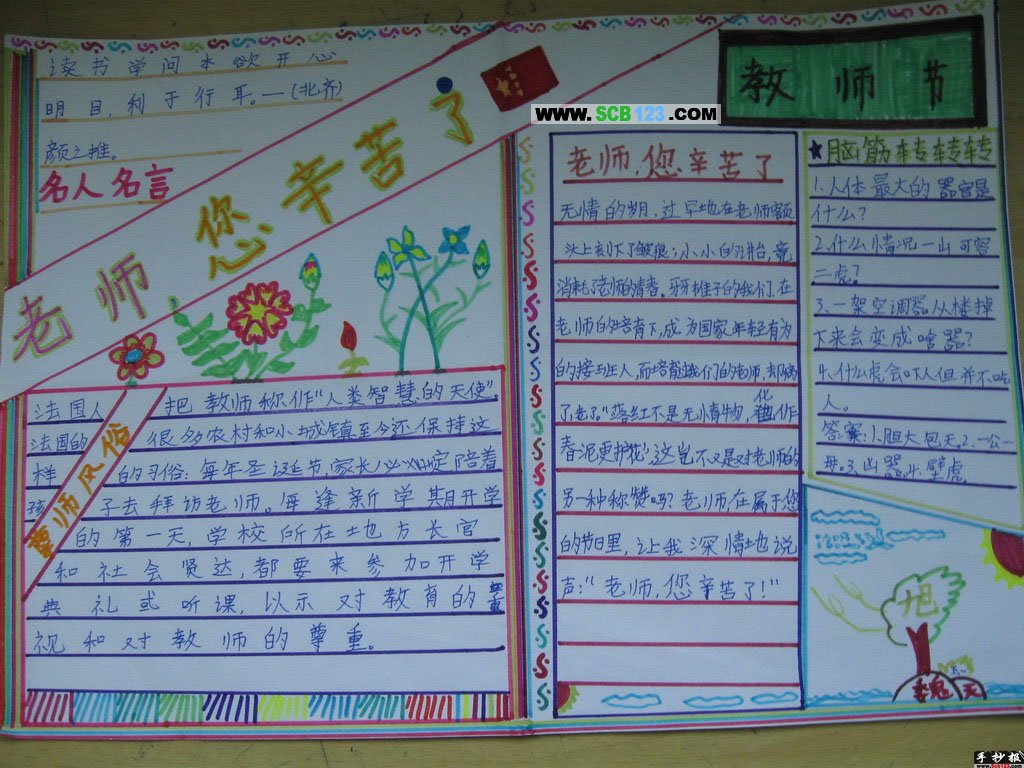 读书学问本欲开心
明目,利于行耳。—(北齐)
颜之推。
名人名言
老师您辛苦了
www.SCB123.com
教师节
法国人 把教师称作“人类智慧的天使”。
法国的 很多农村和小城镇至今还保持这
样 的习俗:每年圣诞节,家长必定陪着
孩 子去拜访老师。每逢新学期开学
的第一天,学校所在地方长官
和社会贤达,都要来参加开学
典礼或听课,以示对教育的重
视和对教师的尊重。
尊师风俗
老师,您辛苦了
无情的岁月,过早地在老师额
头上刻下了皱痕;小小的讲台,竟
消耗了老师的青春。牙牙稚子的我们,在
老师的培育下,成为国家年轻有为
的接班人,而培育我们的老师,却
了,老了。“落红不是无情物,化作
春泥更护花”,这岂不又是对老师的
另一种称赞吗?老师,在属于您
的节日里,让我深情地说
声:“老师,您辛苦了!”
★脑筋转转转
1.人体最大的器官是
什么?
2.什么情况一山可容
二虎?
3.一架空调器从楼掉
下来会变成啥器?
4.什么虎会吓人但并不吃
人。
答案:1.胆大包天2.一公一
母。3.凶器.4.壁虎
旭
魏天
手抄报